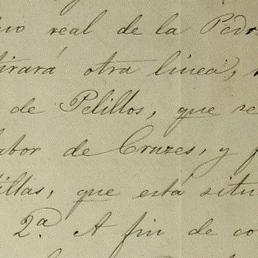 real de la Pedr
tirará otra linea,
de Pelillos, que se
labor de Cruzes, y
illas, que está situ
2ª. A fin de co